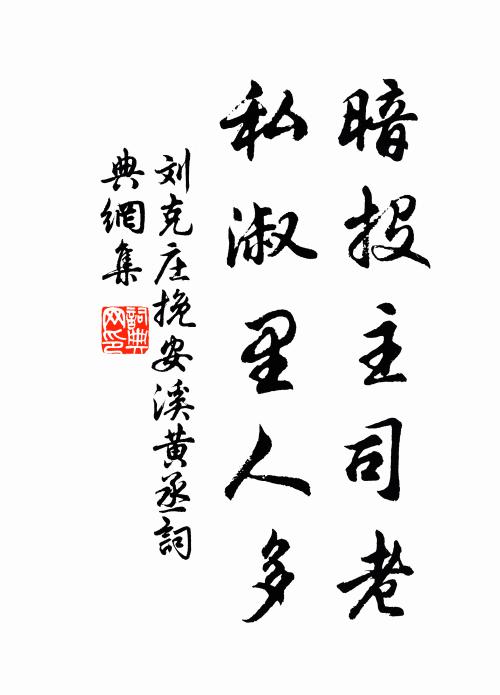 暗投主司老
私淑里人多
刘克庄挽安溪黄丞詞
典網集
詞典网印